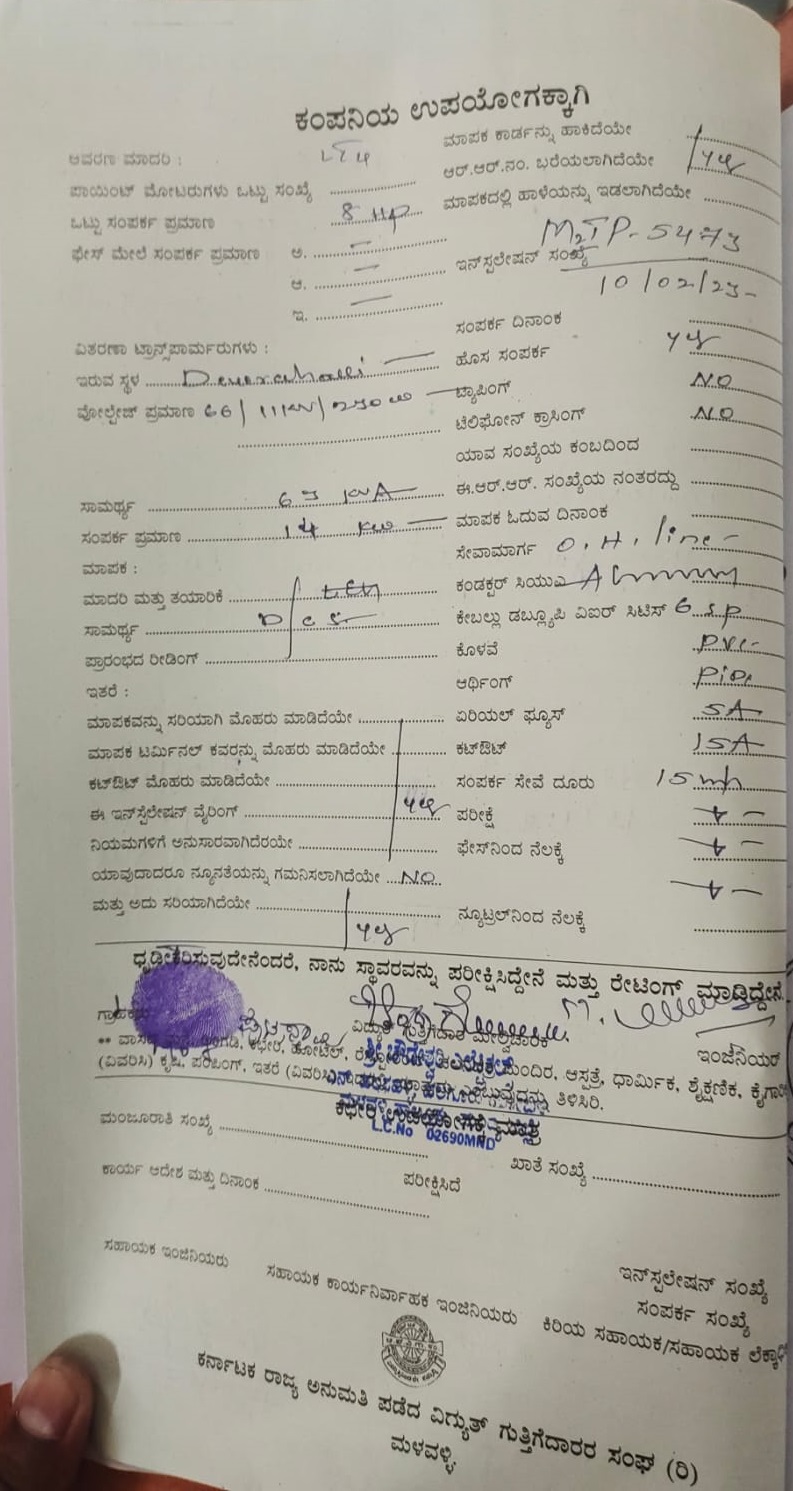 ಕಂಪನಿಯ ಉಪಯೋಗಕ್ಕಾಗಿ
ಆವರಣ ಮಾದರಿ :
ಮಾಪಕ ಕಾರ್ಡನ್ನು ಹಾಕಿದೆಯೇ
ಪಾಯಿಂಟ್ ಮೋಟರುಗಳು ಒಟ್ಟು ಸಂಖ್ಯೆ
ಆರ್.ಆರ್.ನಂ. ಬರೆಯಲಾಗಿದೆಯೇ
ಒಟ್ಟು ಸಂಪರ್ಕ ಪ್ರಮಾಣ 8 HP
ಮಾಪಕದಲ್ಲಿ ಹಾಳೆಯನ್ನು ಇಡಲಾಗಿದೆಯೇ
ಫೇಸ್ ಮೇಲೆ ಸಂಪರ್ಕ ಪ್ರಮಾಣ ಅ. –
ಆ. –
ಇ. –
ಇನ್‌ಸ್ಪಲೇಷನ್ ಸಂಖ್ಯೆ M2TP-5473
10/02/23
ಸಂಪರ್ಕ ದಿನಾಂಕ
ವಿತರಣಾ ಟ್ರಾನ್ಸ್‌ಪಾರ್ಮರುಗಳು :
ಹೊಸ ಸಂಪರ್ಕ
ಇರುವ ಸ್ಥಳ
ಟ್ಯಾಪಿಂಗ್ NO
ವೋಲ್ಟೇಜ್ ಪ್ರಮಾಣ 66/11KV/250
ಟೆಲಿಫೋನ್ ಕ್ರಾಸಿಂಗ್ NO
ಯಾವ ಸಂಖ್ಯೆಯ ಕಂಬದಿಂದ
ಸಾಮರ್ಥ್ಯ 63 KVA
ಈ.ಆರ್.ಆರ್. ಸಂಖ್ಯೆಯ ನಂತರದ್ದು
ಸಂಪರ್ಕ ಪ್ರಮಾಣ 14 KW
ಮಾಪಕ ಓದುವ ದಿನಾಂಕ
ಮಾಪಕ :
ಸೇವಾಮಾರ್ಗ O.H. line
ಮಾದರಿ ಮತ್ತು ತಯಾರಿಕೆ
ಕಂಡಕ್ಟರ್ ಸಿಯುಎ
ಸಾಮರ್ಥ್ಯ
ಕೇಬಲ್ಲು ಡಬ್ಲ್ಯೂಪಿ ವಿಐರ್ ಸಿಟಿಸ್
ಪ್ರಾರಂಭದ ರೀಡಿಂಗ್
ಕೊಳವೆ PVC
ಇತರೆ :
ಆರ್ಥಿಂಗ್ Pipe
ಮಾಪಕವನ್ನು ಸರಿಯಾಗಿ ಮೊಹರು ಮಾಡಿದೆಯೇ
ಏರಿಯಲ್ ಫ್ಯೂಸ್ 5A
ಮಾಪಕ ಟರ್ಮಿನಲ್ ಕವರನ್ನು ಮೊಹರು ಮಾಡಿದೆಯೇ
ಕಟ್‌ಔಟ್ 15A
ಕಟ್‌ಔಟ್ ಮೊಹರು ಮಾಡಿದೆಯೇ
ಸಂಪರ್ಕ ಸೇವೆ ದೂರು
ಈ ಇನ್‌ಸ್ಪೆಲೇಷನ್ ವೈರಿಂಗ್
ಪರೀಕ್ಷೆ
ನಿಯಮಗಳಿಗೆ ಅನುಸಾರವಾಗಿದೆರಯೇ
ಫೇಸ್‌ನಿಂದ ನೆಲಕ್ಕೆ
ಯಾವುದಾದರೂ ನ್ಯೂನತೆಯನ್ನು ಗಮನಿಸಲಾಗಿದೆಯೇ NO
ಮತ್ತು ಅದು ಸರಿಯಾಗಿದೆಯೇ
ನ್ಯೂಟ್ರಲ್‌ನಿಂದ ನೆಲಕ್ಕೆ
ಧೃಡೀಕರಿಸುವುದೇನೆಂದರೆ, ನಾನು ಸ್ಥಾವರವನ್ನು ಪರೀಕ್ಷಿಸಿದ್ದೇನೆ ಮತ್ತು ರೇಟಿಂಗ್ ಮಾಡಿದ್ದೇನೆ
ವಿದ್ಯುತ್ ಗುತ್ತಿಗೆದಾರ ಮೇಲ್ವಿಚಾರಕ
ಇಂಜಿನಿಯರ್
ಕಛೇರಿ, ಹೋಟೆಲ್, ಮಂದಿರ, ಆಸ್ಪತ್ರೆ, ಧಾರ್ಮಿಕ, ಶೈಕ್ಷಣಿಕ,
(ವಿವರಿಸಿ) ಕೃಷಿ, ಪಂಪಿಂಗ್, ಇತರೆ ಎಂಬುವುದನ್ನು ತಿಳಿಸಿರಿ.
ಕಛೇರಿ ಉಪಯೋಗಕ್ಕೆ ಮಾತ್ರ
L.C.No 02690MND
ಮಂಜೂರಾತಿ ಸಂಖ್ಯೆ
ಖಾತೆ ಸಂಖ್ಯೆ
ಕಾರ್ಯ ಆದೇಶ ಮತ್ತು ದಿನಾಂಕ
ಪರೀಕ್ಷಿಸಿದೆ
ಇನ್‌ಸ್ಪಲೇಷನ್ ಸಂಖ್ಯೆ
ಸಂಪರ್ಕ ಸಂಖ್ಯೆ
ಸಹಾಯಕ ಇಂಜಿನಿಯರು
ಸಹಾಯಕ ಕಾರ್ಯನಿರ್ವಾಹಕ ಇಂಜಿನಿಯರು
ಕಿರಿಯ ಸಹಾಯಕ/ಸಹಾಯಕ
ಕರ್ನಾಟಕ ರಾಜ್ಯ ಅನುಮತಿ ಪಡೆದ ವಿದ್ಯುತ್ ಗುತ್ತಿಗೆದಾರರ ಸಂಘ (ರಿ)
ಮಳವಳ್ಳಿ.